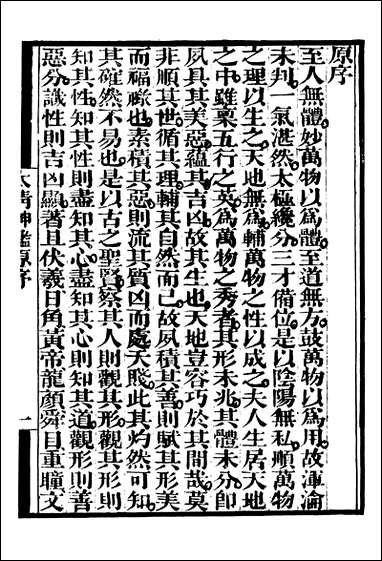 原序
至人無體。妙萬物以爲體。至道無方。鼓萬物以爲用。故渾淪
未判。一氣湛然。太極纔分。三才備位。是以陰陽無私。順萬物
之理以生之。天地無爲。輔萬物之性以成之。夫人生居天地
之中。雖稟五行之英。爲萬物之秀者。其形未兆。其體未分。即
夙具其美惡。蘊其吉凶。故其生也。天地豈容巧於其間哉。莫
非順其世。循其理。輔其自然而已。故夙積其善。則賦其形美
而福祿也。素積其惡。則流其質凶而處夭賤。此其灼然可知。
其確然不易也。是以古之聖賢。察其人則觀其形。觀其形則
知其性。知其性則盡知其心。盡知其心則知其道。觀形則善
惡分。識性則吉凶顯著。且伏羲日角。黃帝龍顏。舜目重瞳。文
太清神鑑原序
一